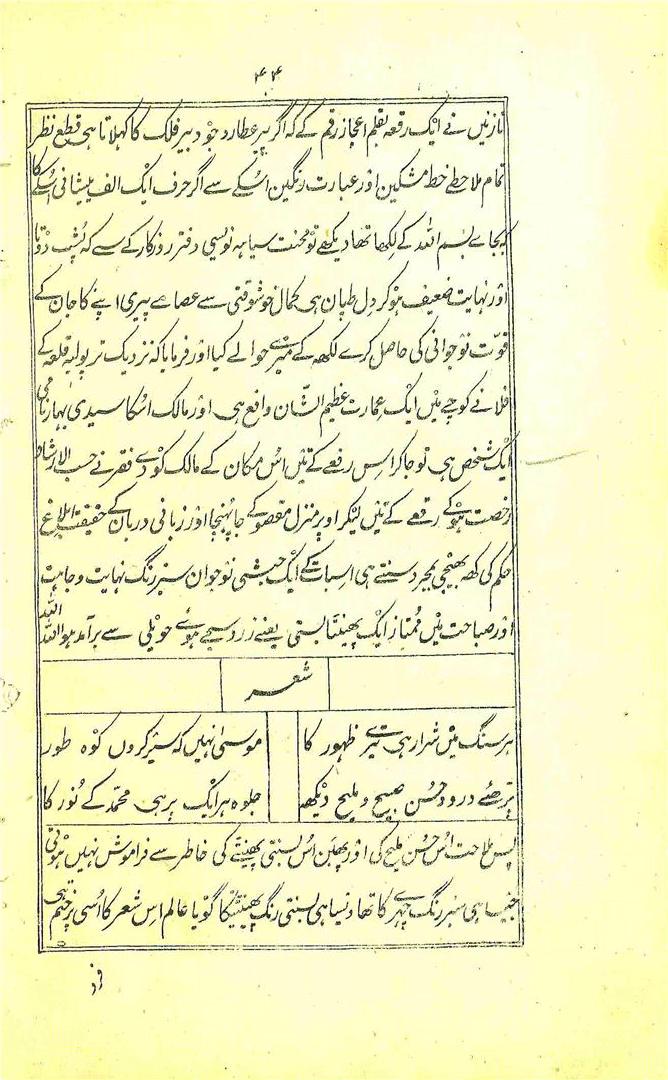 ۴۴
نازنیں نے ایک رقعہ بقلم اعجاز رقم کے کہ اگر پیر عطارد جو دبیر فلک کا کہلاتا ہی قطع نظر
تمام ملاحظے خط مشکین اور عبارت رنگین اسکے سے اگر حرف ایک الف پیشانی اسکے کا
کہ بجاے بسم اللہ کے لکھا تھا دیکھے تو محنت سیاہہ نویسی دفتر روزگار کے سے کہ پشت دوتا
اور نہایت ضعیف ہو کر دل طپان ہی کمال خوشوقتی سے عصاے پیری اپنے کا جان کے
قوت نوجوانی کی حاصل کرے لکھہ کے میرے حوالے کیا اور فرمایا کہ نزدیک ترپولیہ قلعہ کے
فلانے کوچے میں ایک عمارت عظیم الشان واقع ہی اور مالک اسکا سیدی بہار نامی
ایک شخص ہی تو جاکر اس رقعے کے تئیں اس مکان کے مالک کو دے فقیر نے حسب الارشاد
رخصت ہو کے رقعے کے تئیں لیکر اوپر منزل مقصود کے جا پہنچا اور زبانی دربان کے حقیقت ابلاغ
حکم کی کہہ بھیجی بمجرد سنتے ہی اس بات کے ایک حبشی نوجوان سبز رنگ نہایت وجاہت
اور صباحت میں ممتاز ایک پھینٹا بسنتی یعنے زرد سجے ہوئے حویلی سے برآمد ہوا اللہ اللہ
شعر
ہر سنگ میں شرار ہی تیرے ظہور کا موسیٰ نہیں کہ سیر کروں کوہ طور کا
پڑھئے درود حسن صبیح و ملیح دیکھہ جلوہ ہر ایک پر ہی محمد کے نور کا
پس ملاحت اس حسن ملیح کی اور پھبن اس بسنتی پھینٹے کی خاطر سے فراموش نہیں ہوتی
جیسا ہی سبز رنگ چہرے کا تھا ویسا ہی بسنتی رنگ پھینٹیکا گویا عالم اس شعر کا اسی پر ختم ہی
فرد